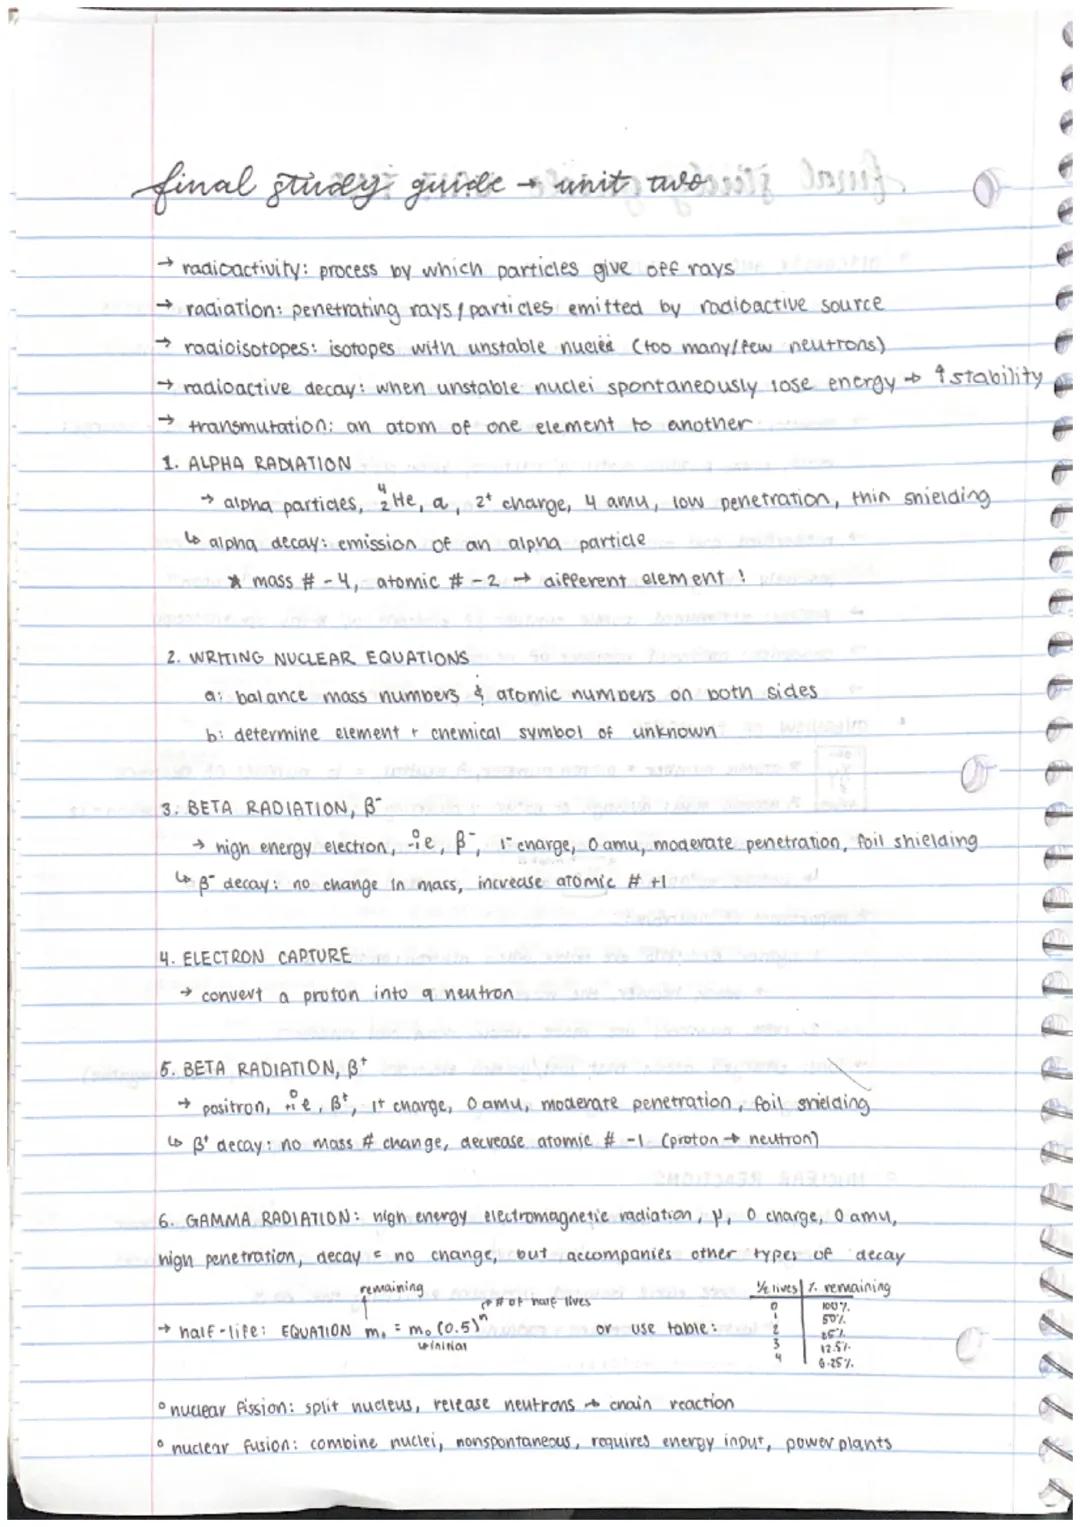 final study guide → unit two
→ radioactivity: process by which particles give off rays
→ radiation: penetrating rays / particles emitted by radioactive source
→ radioisotopes: isotopes with unstable nuclei (too many/few neutrons)
→ radioactive decay: when unstable nuclei spontaneously lose energy → ↑stability
→ transmutation: an atom of one element to another
1. ALPHA RADIATION
→ alpha particles, ⁴₂He, α, 2⁺ charge, 4 amu, low penetration, thin shielding
↳ alpha decay: emission of an alpha particle
* mass # -4, atomic # -2 → different element!
2. WRITING NUCLEAR EQUATIONS
a: balance mass numbers & atomic numbers on both sides
b: determine element + chemical symbol of unknown
3. BETA RADIATION, β⁻
→ high energy electron, ⁰₋₁e, β⁻, 1⁻ charge, 0 amu, moderate penetration, foil shielding
↳ β⁻ decay: no change in mass, increase atomic # +1
4. ELECTRON CAPTURE
→ convert a proton into a neutron
5. BETA RADIATION, β⁺
→ positron, ⁰₊₁e, β⁺, 1⁺ charge, 0 amu, moderate penetration, foil shielding
↳ β⁺ decay: no mass # change, decrease atomic # -1 (proton → neutron)
6. GAMMA RADIATION: high energy electromagnetic radiation, γ, 0 charge, 0 amu,
high penetration, decay = no change, but accompanies other types of decay
remaining
→ # of half lives
→ half-life: EQUATION m₁ = m₀ (0.5)ⁿ or use table:
↳ initial
½ lives | % remaining
0 100%
1 50%
2 25%
3 12.5%
4 6.25%
° nuclear fission: split nucleus, release neutrons → chain reaction
° nuclear fusion: combine nuclei, nonspontaneous, requires energy input, power plants